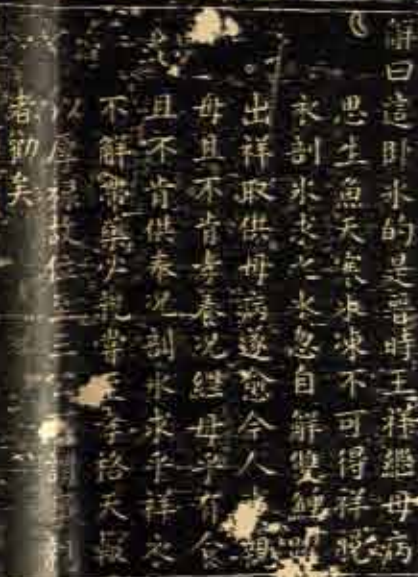 解曰這卧冰的是晉時王祥繼母病
思生魚天寒冰凍不可得祥脫
衣剖冰求之冰忽自解雙鯉躍
出祥取供母病遂愈今人親
母且不肯孝養况繼母乎有食
且不肯供奉况剖冰求乎祥衣
不解帶藥必親嘗至孝格天報
以厚祿故位至三
者勸矣